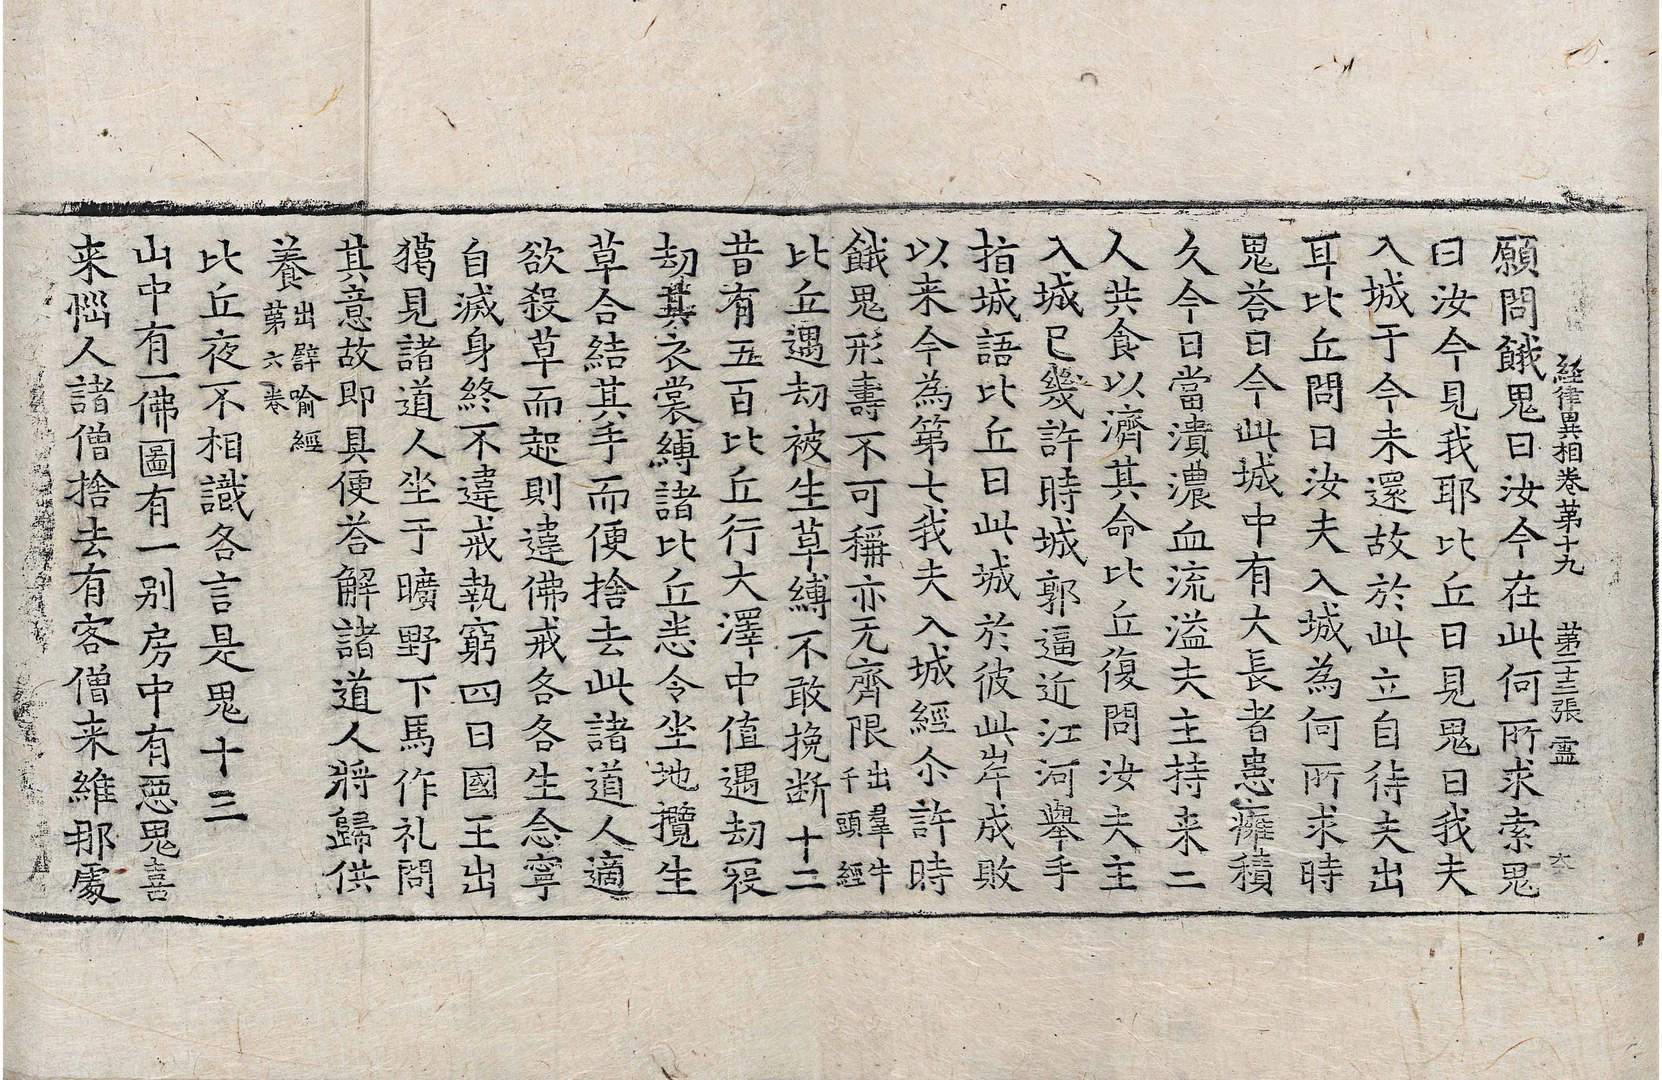 経律異相卷苐十九　苐二十三張　霊
願問餓鬼曰汝今在此何所求索鬼
曰汝今見我耶比丘曰見鬼曰我夫
入城于今未還故於此立自待夫出
耳比丘問曰汝夫入城為何所求時
鬼荅曰今此城中有大長者患癰積
久今日當潰濃血流溢夫主持来二
人共食以濟其命比丘復問汝夫主
入城已幾許時城郭逼近江河舉手
指城語比丘曰此城於彼此岸成敗
以来今為第七我夫入城經尒許時
餓鬼形壽不可稱亦无齊限出羣牛千頭經
比丘遇劫被生草縛不敢挽断十二
昔有五百比丘行大澤中值遇劫冦
劫其衣裳縛諸比丘悉令坐地攬生
草合結其手而便捨去此諸道人適
欲殺草而起則違佛戒各各生念寧
自滅身終不違戒執窮四日國王出
獦見諸道人坐于曠野下馬作礼問
其意故即具便荅解諸道人將歸供
養出譬喻經苐六卷
比丘夜不相識各言是鬼十三
山中有一佛圖有一別房中有惡鬼喜
来惱人諸僧捨去有客僧来維那處